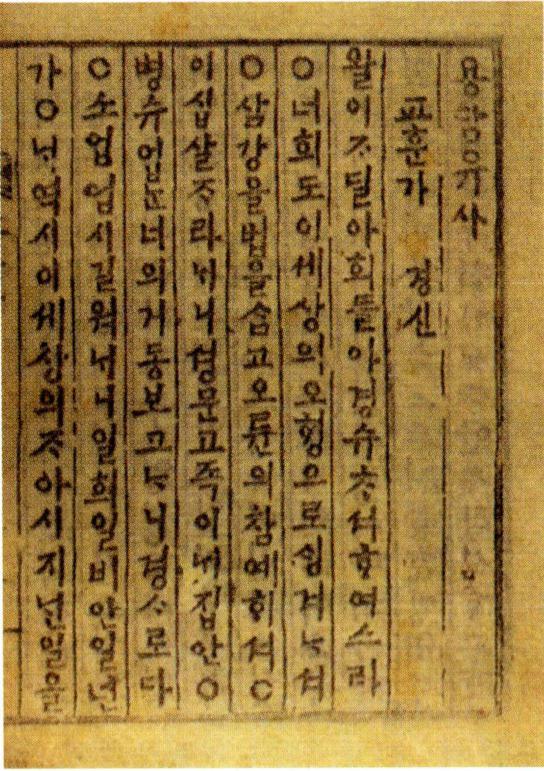 용담유사
교훈가 경신
왈이ᄌᆞ딜아희들아경슈ᄎᆞ셔ᄒᆞ여스라
○너희도이세상의오ᄒᆡᆼ으로ᄉᆡᆼ겨나셔
○삼강을법을삼고오륜의참예ᄒᆡ셔○
이십살ᄌᆞ라나니셩문고족이ᄂᆡ집안○
병슈업난너의거동보고나니경ᄉᆞ로다
○소업업시길너나니일희일비안일넌
가○ᄂᆡ역시이세상의ᄌᆞ아시지ᄂᆡᆫ일을